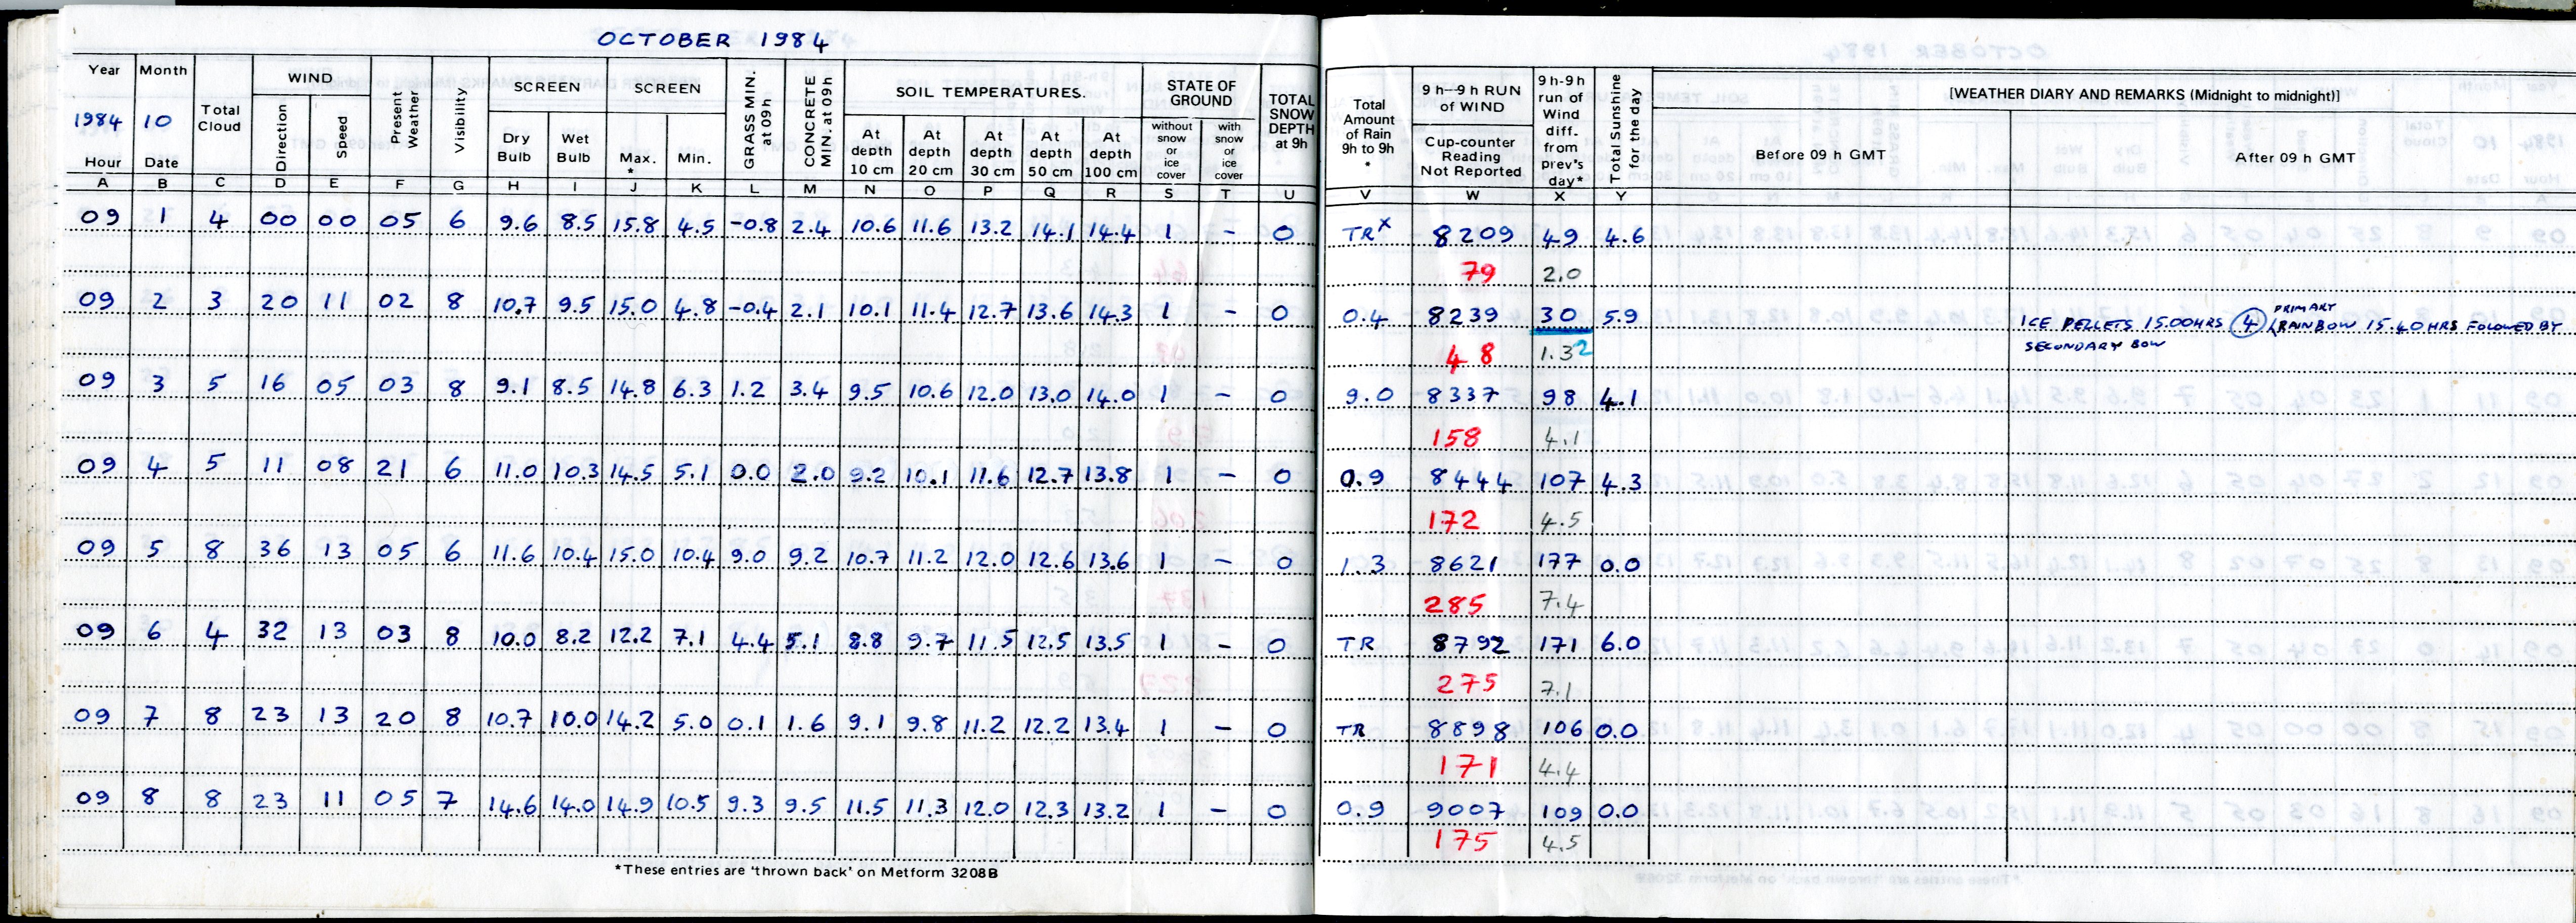 OCTOBER 1984
Year Month Total Cloud WIND Present Weather Visibility SCREEN SCREEN GRASS MIN. at 09h CONCRETE MIN. at 09h SOIL TEMPERATURES. STATE OF GROUND TOTAL SNOW DEPTH at 9h Total Amount of Rain 9h to 9h * 9 h—9 h RUN of WIND 9 h-9 h run of Wind diff. from prev's day* Total Sunshine for the day [WEATHER DIARY AND REMARKS (Midnight to midnight)]
1984 10 Direction Speed Dry Bulb Wet Bulb Max. * Min. At depth 10 cm At depth 20 cm At depth 30 cm At depth 50 cm At depth 100 cm without snow or ice cover with snow or ice cover Cup-counter Reading Not Reported Before 09 h GMT After 09 h GMT
Hour Date
A B C D E F G H I J K L M N O P Q R S T U V W X Y
09 1 4 00 00 05 6 9.6 8.5 15.8 4.5 -0.8 2.4 10.6 11.6 13.2 14.1 14.4 1 - 0 TRx 8209 49 4.6
79 2.0
09 2 3 20 11 02 8 10.7 9.5 15.0 4.8 -0.4 2.1 10.1 11.4 12.7 13.6 14.3 1 - 0 0.4 8239 30 5.9 ICE PELLETS 15.00HRS (4) PRIMARY RAINBOW 15.40HRS FOLOWED BY
48 1.32 SECONDARY BOW
09 3 5 16 05 03 8 9.1 8.5 14.8 6.3 1.2 3.4 9.5 10.6 12.0 13.0 14.0 1 - 0 9.0 8337 98 4.1
158 4.1
09 4 5 11 08 21 6 11.0 10.3 14.5 5.1 0.0 2.0 9.2 10.1 11.6 12.7 13.8 1 - 0 0.9 8444 107 4.3
172 4.5
09 5 8 36 13 05 6 11.6 10.4 15.0 10.4 9.0 9.2 10.7 11.2 12.0 12.6 13.6 1 - 0 1.3 8621 177 0.0
285 7.4
09 6 4 32 13 03 8 10.0 8.2 12.2 7.1 4.4 5.1 8.8 9.7 11.5 12.5 13.5 1 - 0 TR 8792 171 6.0
275 7.1
09 7 8 23 13 20 8 10.7 10.0 14.2 5.0 0.1 1.6 9.1 9.8 11.2 12.2 13.4 1 - 0 TR 8898 106 0.0
171 4.4
09 8 8 23 11 05 7 14.6 14.0 14.9 10.5 9.3 9.5 11.5 11.3 12.0 12.3 13.2 1 - 0 0.9 9007 109 0.0
175 4.5
*These entries are 'thrown back' on Metform 3208B